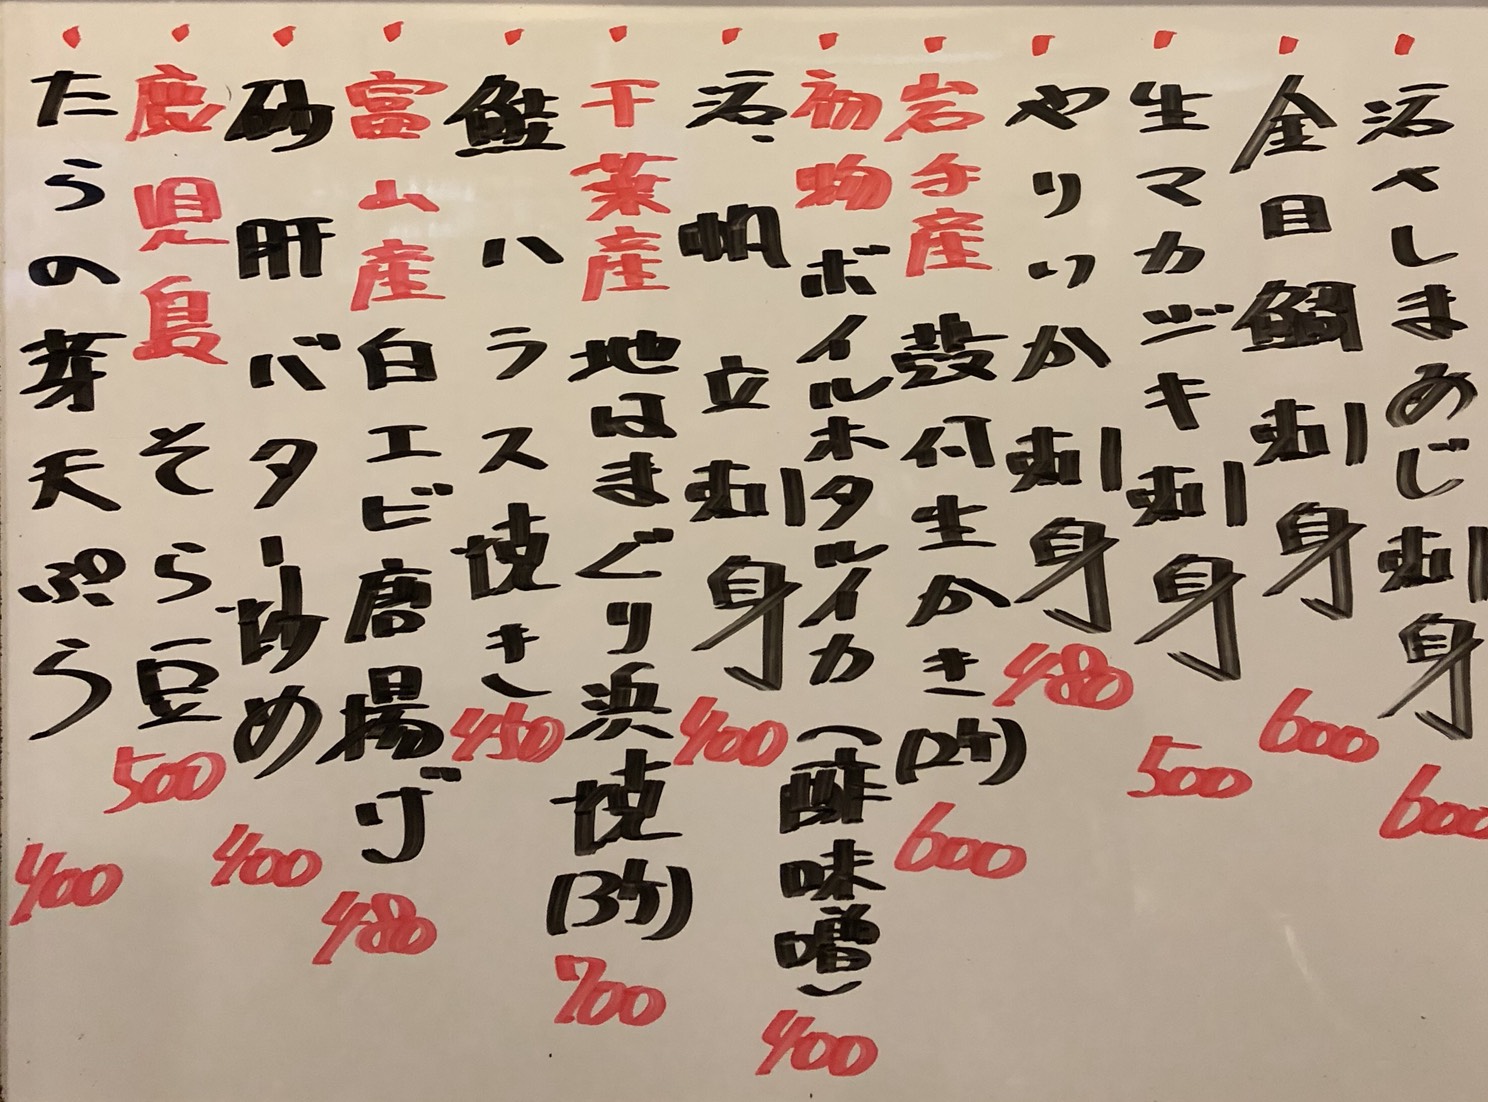 ・活〆しまあじ刺身 600
・金目鯛刺身 600
・生マカジキ刺身 500
・やりいか刺身 480
・岩手産 殻付生かき(2ケ) 600
・初物 ボイルホタルイカ(酢味噌) 400
・活帆立刺身 400
・千葉産 地はまぐり浜焼(3ケ) 700
・鮭ハラス焼き 450
・富山産 白エビ唐揚げ 480
・砂肝バター炒め 400
・鹿児島 そら豆 500
・たらの芽天ぷら 400